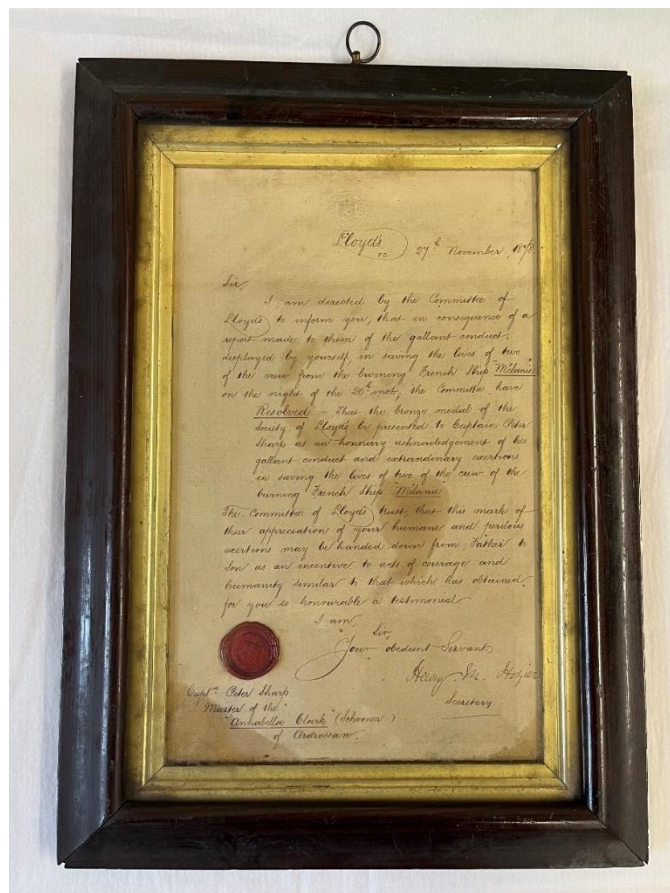 Lloyd's
27th November, 1878
Sir,
I am directed by the Committee of
Lloyd's to inform you, that in consequence of a
report made to them of the gallant conduct
displayed by yourself, in saving the lives of two
of the crew from the burning French Ship "Melanie"
on the night of the 20th inst, the Committee have
Resolved – That the bronze medal of the
Society of Lloyd's be presented to Captain Peter
Sharp as an honorary acknowledgement of his
gallant conduct and extraordinary exertions
in saving the lives of two of the crew of the
burning French Ship "Melanie"
The Committee of Lloyd's trust, that this mark of
their appreciation of your humane and perilous
exertions may be handed down from Father to
Son as an incentive to acts of courage and
humanity similar to that which has obtained
for you so honourable a testimonial
I am
Sir,
Your obedient Servant
Henry M. Hozier
Secretary
Captn Peter Sharp
Master of the
"Annabella Clark" (Schooner)
of Ardrossan.